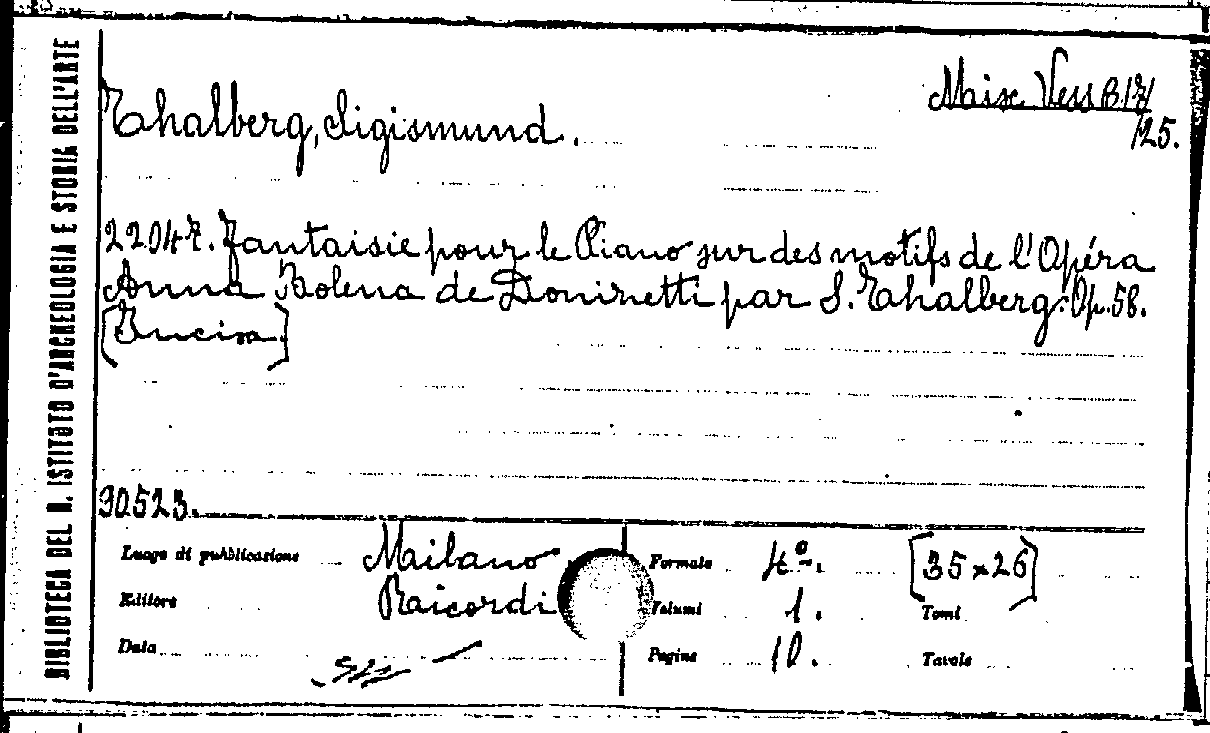 BIBLIOTECA DEL R. ISTITUTO D'ARCHEOLOGIA E STORIA DELL'ARTE
Misc. Vess B.17/
/25.
Thalberg, Sigismund.
22047. Fantaisie pour le Piano sur des motifs de l'Opéra
Anna Bolena de Donizetti par S. Thalberg. Op. 58.
[Incisa.]
30523.
Luogo di pubblicazione Milano Formato 4º. [35 x 26]
Editore Ricordi Volumi 1. Tomi
Data Pagine 10. Tavole